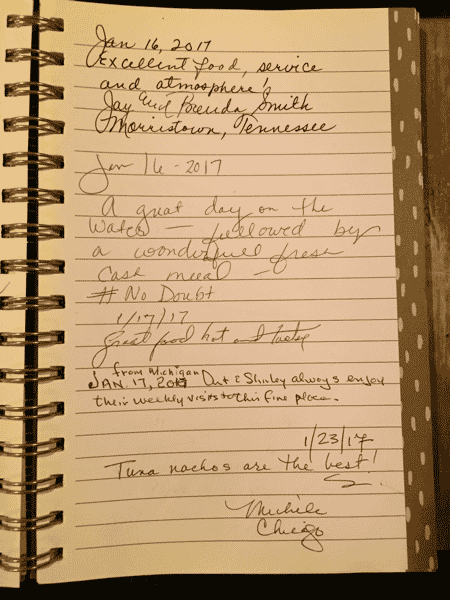 Jan 16, 2017
Excellent food, service
and atmosphere!
Jay and Brenda Smith
Morristown, Tennessee
Jan 16-2017
A great day on the
Water — followed by
a wonderfull fresh
meal —
# No Doubt
1/17/17
Great food hot and
from Michigan
JAN. 17, 2017 & Shirley always enjoy
their weekly visits to this fine place.
1/23/17
Tuna nachos are the best!
Michele
Chicago